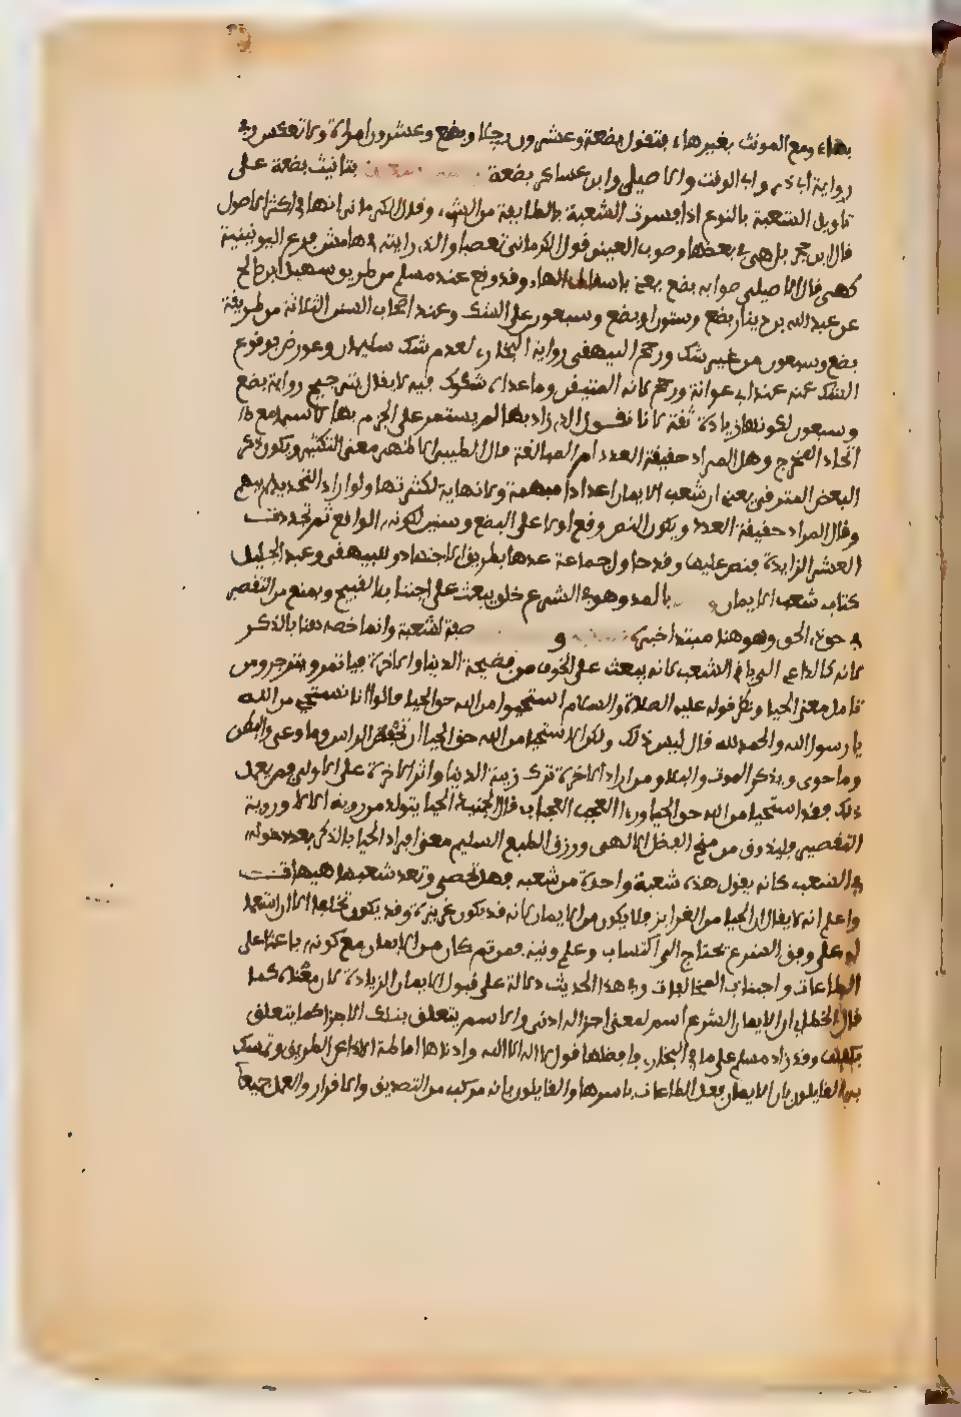 بهاء ومع المونث بغير هاء فتقول بضعة وعشرون رجلا وبضع وعشرون امراة ولا تعكس وفي
رواية ابي ذر وابي الوقت والاصيلي وابن عساكر بضعة بتانيث بضعة على
تاويل الشعبة بالنوع اذا فسرت الشعبة بالطايفة من الشيء وقال الكرماني انها في اكثر الاصول
قال ابن حجر بل هي في بعضها وصوب العيني قول الكرماني تعصبا والذي رايته في هامش فرع اليونينية
كهي قال الاصيلي صوابه بضع يعني باسقاط الهاء وقد وقع عند مسلم من طريق سهيل بن ابي صالح
عن عبد الله بن دينار بضع وستون او بضع وسبعون على الشك وعند اصحاب السنن الثلاثة من طريقة
بضع وسبعون من غير شك ورجح البيهقي رواية البخاري لعدم شك سليمان وعورض بوقوع
الشك عنه عند ابي عوانة ورجح لانه المتيقن وما عداه شكوك فيه لا يقال بترجيح رواية بضع
وسبعون لكونها زيادة ثقة لانا نقول الذي زادها لم يستمر على الجزم بها لا سيما مع
اتحاد المخرج وهل المراد حقيقة العدد ام المبالغة قال الطيبي الاظهر معنى التكثير ويكون ذكر
البضع للترقي يعني ان شعب الايمان اعداد مبهمة ولا نهاية لكثرتها ولو اراد التحديد لم يبهم
وقال المراد حقيقة العدد ويكون النص وقع اولا على البضع وستين لكونه الواقع ثم تجددت
العشر الزايدة فنص عليها وقد حاول جماعة عدها بطريق الاجتهاد وللبيهقي وعبد الجليل
كتاب شعب الايمان بالمد وهو في الشرع خلق يبعث على اجتناب القبيح ويمنع من التقصير
في حق ذي الحق وهو هنا مبتدا خبره و صفة لشعبة وانما خصه هنا بالذكر
لانه كالداعي الى باقي الشعب لانه يبعث على الخوف من فضيحة الدنيا والاخرة فياتمر وينزجر ومن
تامل معنى الحياء ونظر قوله عليه الصلاة والسلام استحيوا من الله حق الحياء قالوا انا نستحي من الله
يا رسول الله والحمد لله قال ليس ذلك ولكن الاستحياء من الله حق الحياء ان تحفظ الراس وما وعى والبطن
وما حوى ويذكر الموت والبلى ومن اراد الاخرة ترك زينة الدنيا واثر الاخرة على الاولى فمن يعمل
ذلك فقد استحيا من الله حق الحياء وراى العجب العجاب قال الجنيد الحيا يتولد من روية الالاء وروية
التقصير فليذوق من منح الفضل الالهي ورزق الطبع السليم معنى افراد الحيا بالذكر بعد دخوله
في الشعب كانه يقول هذه شعبة واحدة من شعبه فهل تحصى وتعد شعبها هيهات
واعلم انه لا يقال ان الحيا من الغرايز فلا يكون من الايمان لانه قد يكون غريزة وقد يكون تخلقا الا ان استعما
له على وفق الشرع تحتاج الى اكتساب وعلم ونية فمن ثم كان من الايمان مع كونه باعثا على
الطاعات واجتناب المخالفات وفي هذا الحديث دلالة على قبول الايمان الزيادة لان معناه كما
قال الخطابي ان الايمان الشرعي اسم لمعنى له اجزا ادنى والاسم يتعلق بتلك الاجزا كما يتعلق
بكلها وقد زاد مسلم على ما في البخاري فافضلها قول لا اله الا الله وادناها اماطة الاذى عن الطريق وتمسك
به القايلون بان الايمان فعل الطاعات باسرها والقايلون بانه مركب من التصديق والاقرار والعمل جميعا